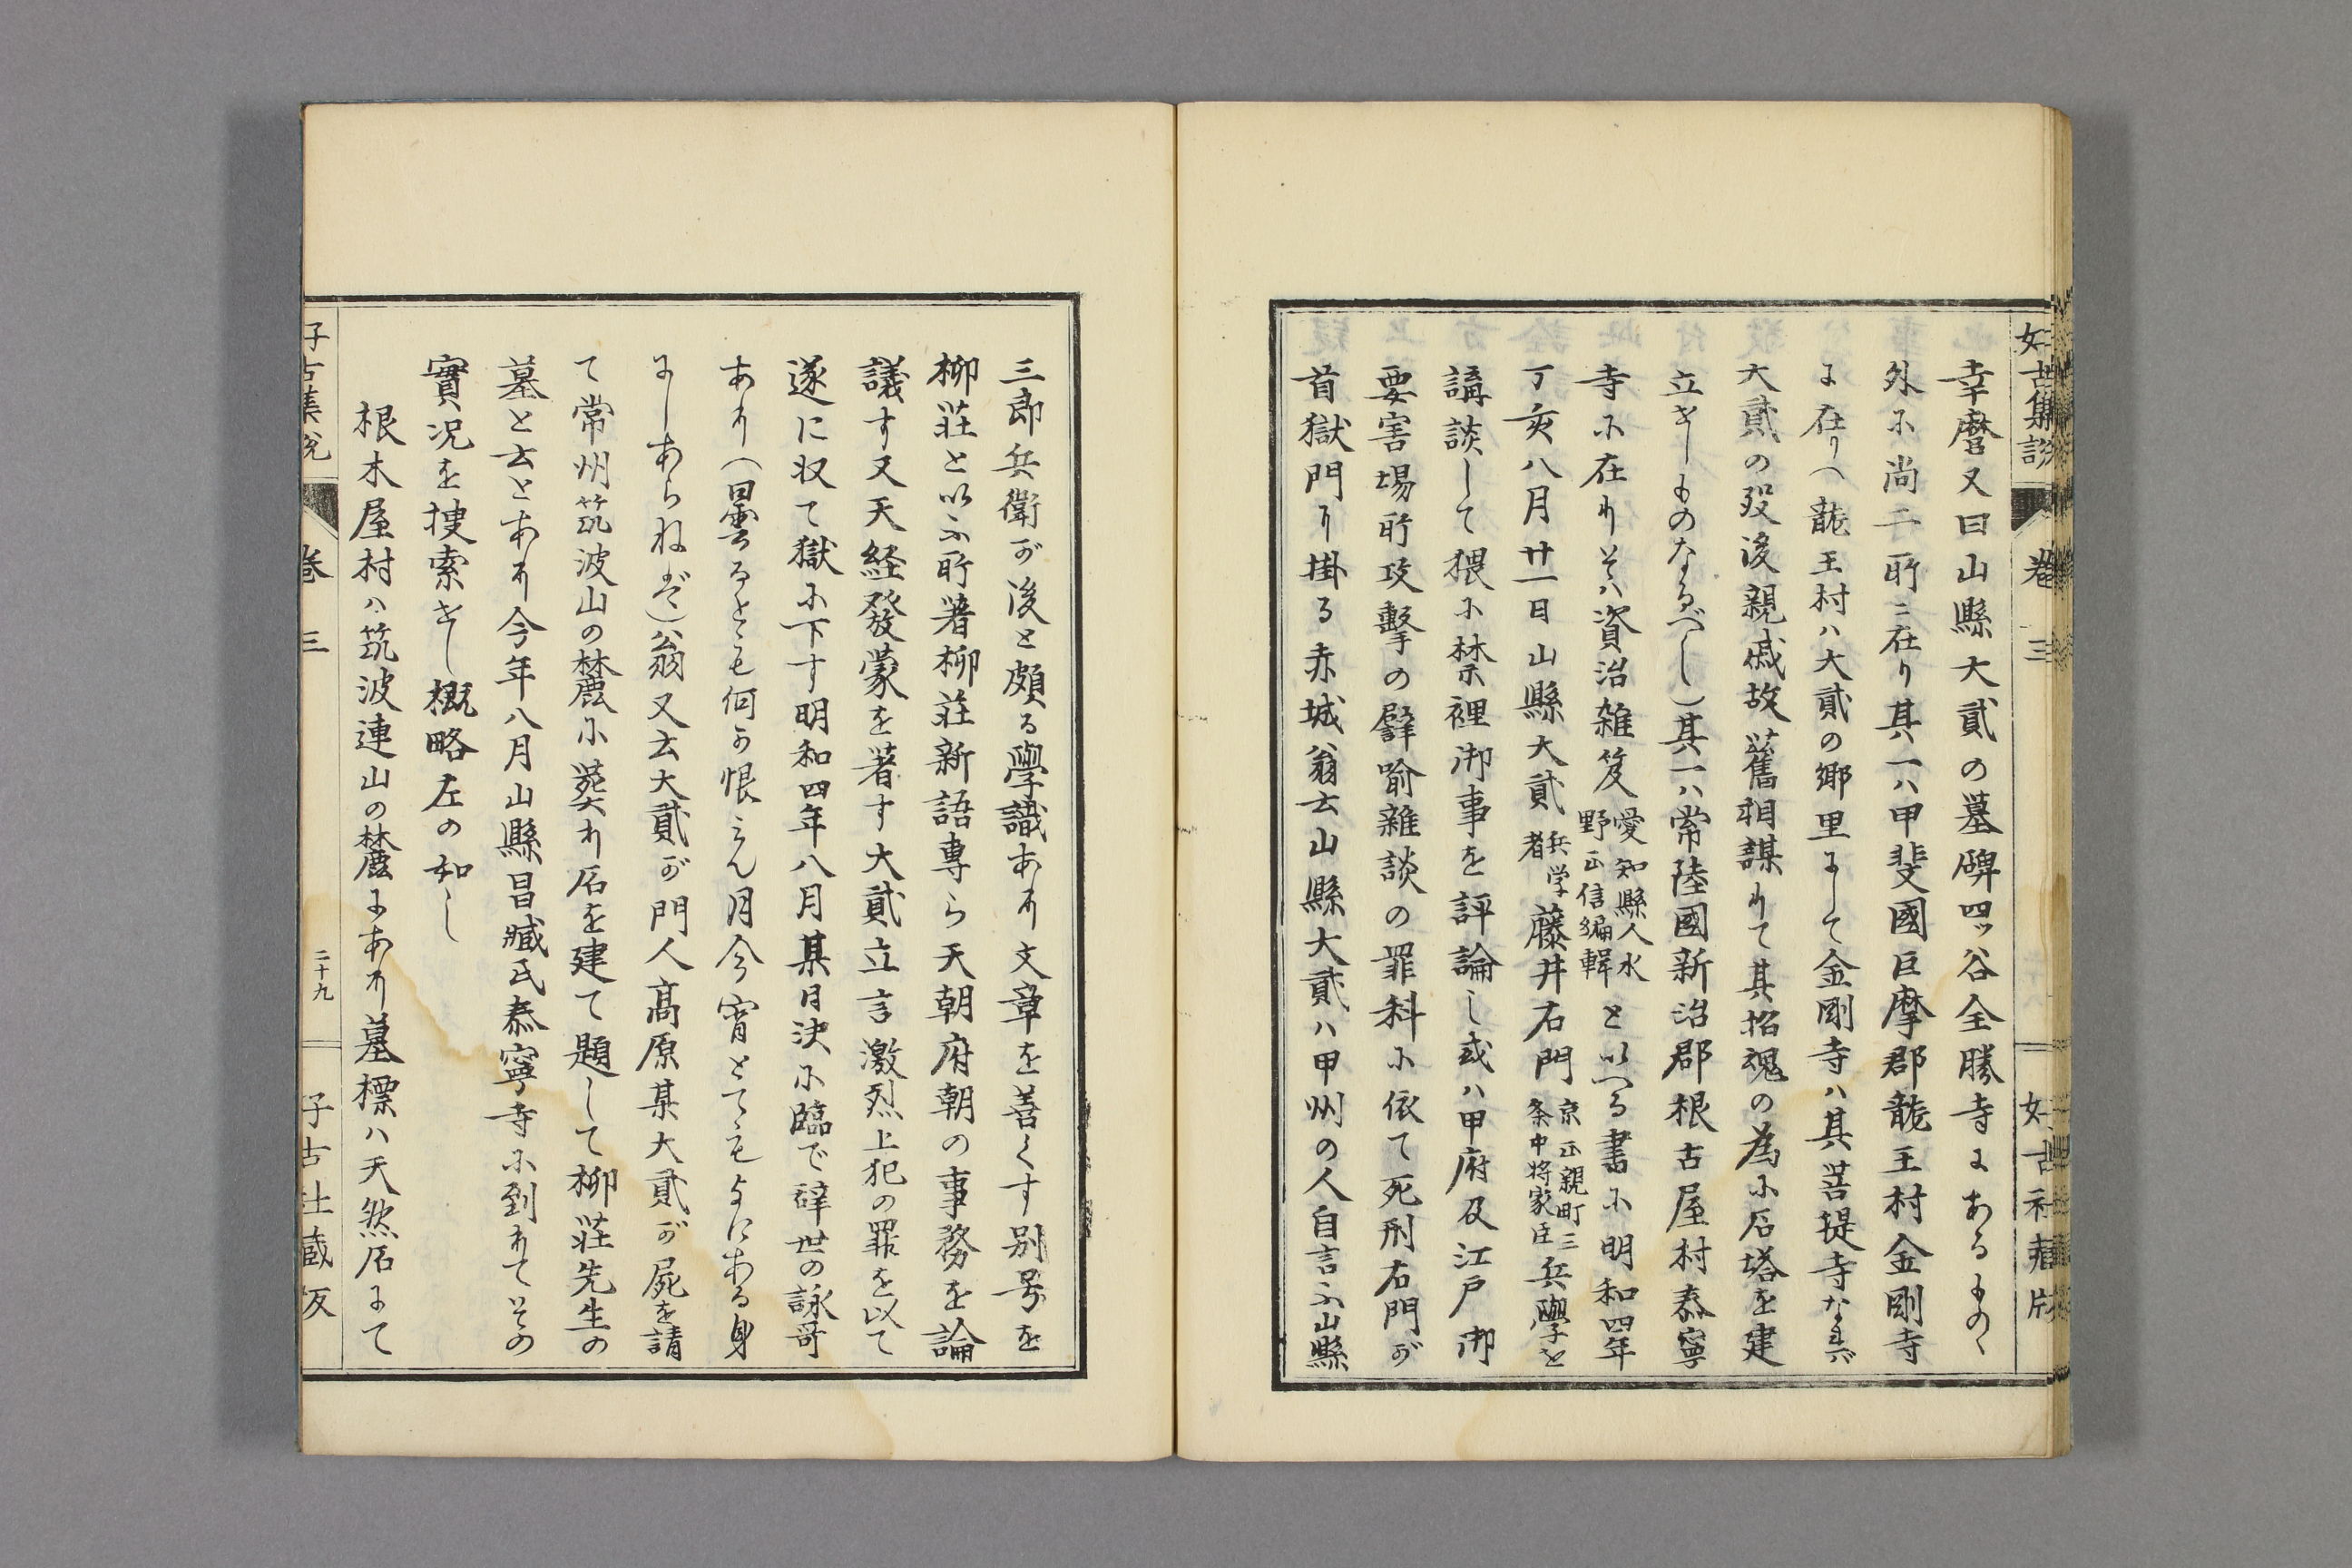 好古集説　巻三　好古社蔵版
幸麿又曰山縣大貳の墓碑四ッ谷全勝寺にあるものゝ
外に尚二所ニ在り其一ハ甲斐國巨摩郡龍王村金剛寺
に在り（龍王村ハ大貳の郷里にして金剛寺ハ其菩提寺なれバ
大貳の歿後親戚故舊相謀りて其招魂の為に石塔を建
立せしものなるべし）其一ハ常陸國新治郡根古屋村泰寧
寺に在りそハ資治雑笈愛知縣人水野正信編輯といへる書に明和四年
丁亥八月廿一日山縣大貳兵学者藤井右門京正親町三条中将家臣兵學を
講談して猥に禁裡御事を評論し或ハ甲府及江戸御
要害場所攻撃の譬喩雜談の罪科に依て死刑右門が
首獄門に掛る赤城翁云山縣大貳ハ甲州の人自言ふ山縣
三郎兵衛が後と頗る學識あり文章を善くす別号を
柳荘と以ふ所著柳荘新語専ら天朝府朝の事務を論
議す又天経發蒙を著す大貳立言激烈上犯の罪を以て
遂に収て獄に下す明和四年八月某日決に臨で辞世の詠哥
あり（曇るとも何か恨えん月今宵とても よにある身
にしあらねば）翁又云大貳が門人髙原某大貳が屍を請
て常州筑波山の麓に葬れり石を建て題して柳荘先生の
墓と云とあり今年八月山縣昌臧氏泰寧寺に到りてその
實况を捜索せし概略左の如し
根木屋村ハ筑波連山の麓にあり墓標ハ天然石にて
好古集説　巻三　二十九　好古社蔵版